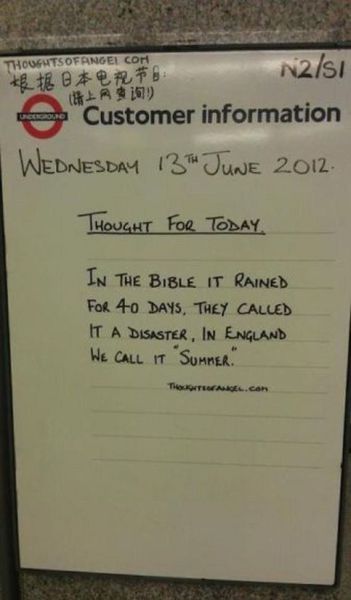 THOUGHTSOFANGEL.COM
根据日本电视节目
(请上网查询!)
N2/S1
UNDERGROUND
Customer information
WEDNESDAY 13TH JUNE 2012.
THOUGHT FOR TODAY.
IN THE BIBLE IT RAINED
FOR 40 DAYS, THEY CALLED
IT A DISASTER, IN ENGLAND
WE CALL IT "SUMMER."
THOUGHTSOFANGEL.COM